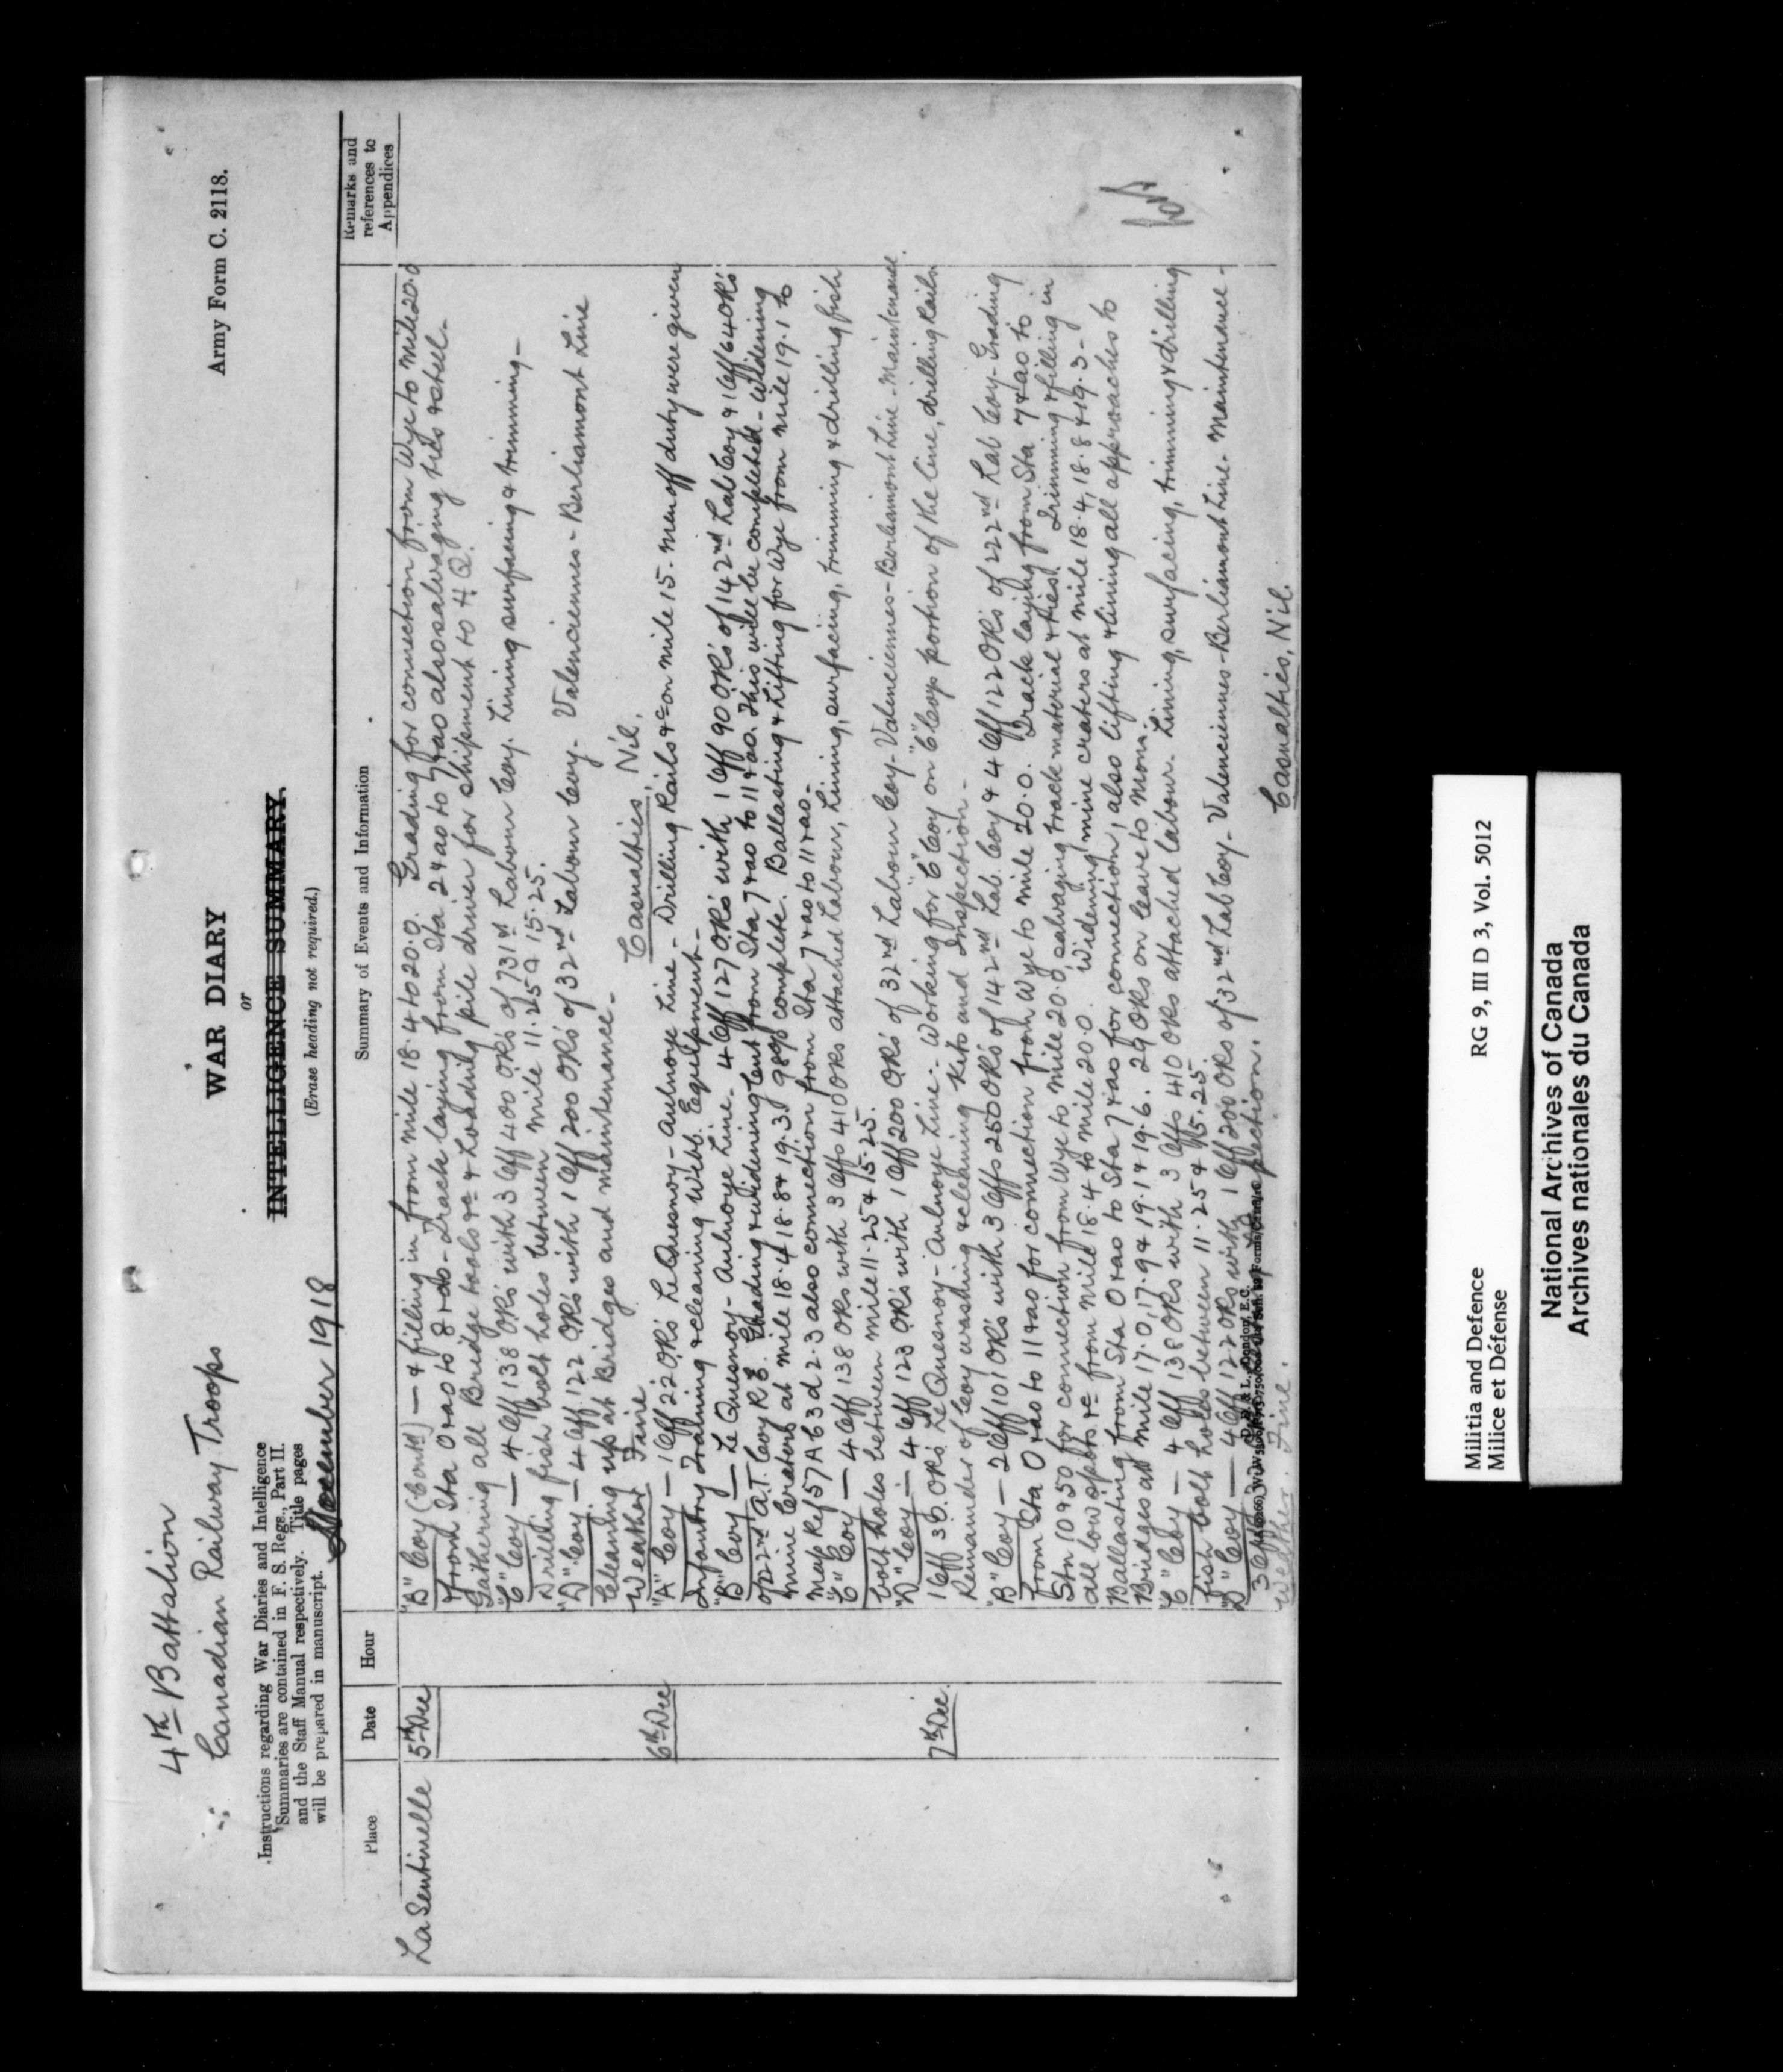 4th Battalion
Canadian Railway Troops
Army Form C. 2118.
WAR DIARY
or
INTELLIGENCE SUMMARY.
(Erase heading not required.)
Instructions regarding War Diaries and Intelligence
Summaries are contained in F. S. Regs., Part II.
and the Staff Manual respectively. Title pages
will be prepared in manuscript.
December 1918
Place
Date
Hour
Summary of Events and Information
Remarks and
references to
Appendices
La Sentinelle
5th Dec
"B" Coy (Contd) — & filling in from mile 18.4 to 20.0. Grading for connection from Wye to mile 20.0
from Sta 0+00 to 8+00 - Track laying from Sta 2+00 to 7+00 also salvaging ties & steel -
Gathering all Bridge tools &c & Loading pile driver for shipment to H.Q.
"C" Coy — 4 Off 138 ORs with 3 Off 400 ORs of 731st Labour Coy. Lining surfacing & trimming -
Drilling fish bolt holes between mile 11.25 & 15.25.
"D" Coy — 4 Off. 122 ORs with 1 Off 200 ORs of 32nd Labour Coy - Valenciennes - Berliamont Line
Cleaning up at Bridges and maintenance -
Weather Fine Casualties, Nil.
6th Dec
"A" Coy — 1 Off 22 ORs Le Quesnoy - Aulnoye Line - Drilling Rails &c on mile 15. Men off duty were given
Infantry Training & cleaning Webb. Equipment -
"B" Coy — Le Quesnoy - Aulnoye Line - 4 Off 127 ORs with 1 Off 90 ORs of 142nd Lab Coy & 1 Off 64 ORs
of 22nd A.T. Coy R.E. Grading & widening Cut from Sta 7+00 to 11+00. This will be completed - Widening
mine Craters at mile 18.4, 18.8 & 19.3. 98% complete. Ballasting & Lifting for Wye from mile 19.1 to
Map Ref 57A b3d 2.3 also connection from Sta 7+00 to 11+00 -
"C" Coy — 4 Off 138 ORs with 3 Offs 410 ORs attached Labour, Lining, surfacing, trimming & drilling fish
bolt holes between mile 11.25 & 15.25.
"D" Coy — 4 Off 123 ORs with 1 Off 200 ORs of 32nd Labour Coy - Valenciennes - Berliamont Line - Maintenance.
7th Dec.
1 Off 30 ORs Le Quesnoy - Aulnoye Line - Working for "C" Coy on "C" Coys portion of the line, drilling Rails.
Remainder of Coy washing & cleaning kits and Inspection -
"B" Coy — 2 Off 101 ORs with 3 Offs 250 ORs of 142nd Lab. Coy & 4 Off 122 ORs of 222nd Lab Coy - Grading
from Sta 0+00 to 11+00 for connection from Wye to mile 20.0. Track laying from Sta 7+00 to
Stn 10+50 for connection from Wye to mile 20.0, salvaging track material & ties. Trimming & filling in
all low spots &c from mile 18.4 to mile 20.0. Widening mine craters at mile 18.4, 18.8 & 19.3 -
Ballasting from Sta 0+00 to Sta 7+00 for connection, also lifting & lining all approaches to
Bridges at mile 17.0, 17.9 & 19.1 & 19.6. 29 ORs on leave to Mons.
"C" Coy — 4 Off 138 ORs with 3 Offs 410 ORs attached labour. Lining, surfacing, trimming & drilling
fish bolt holes between 11.25 & 15.25.
"D" Coy — 4 Off 122 ORs with 1 Off 200 ORs of 32nd Lab Coy - Valenciennes - Berliamont Line - Maintenance -
Weather. Fine. Casualties, Nil.
Militia and Defence
Milice et Défense
RG 9, III D 3, Vol. 5012
National Archives of Canada
Archives nationales du Canada